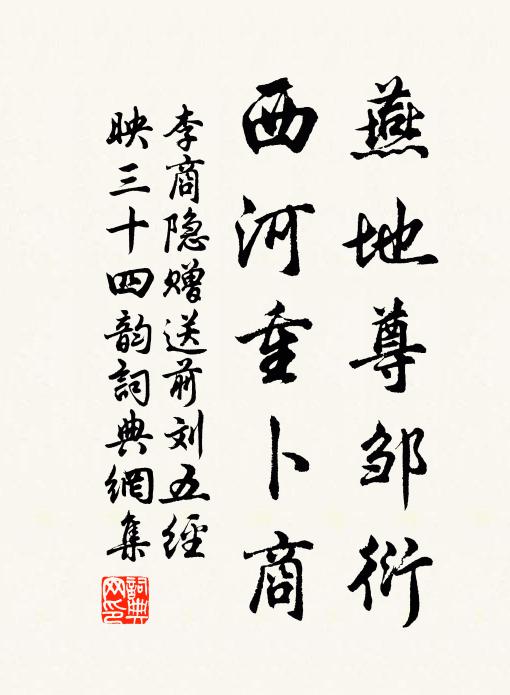 燕地尊邹衍
西河重卜商
李商隐赠送前刘五经
映三十四韵詞典網集
詞典
网印